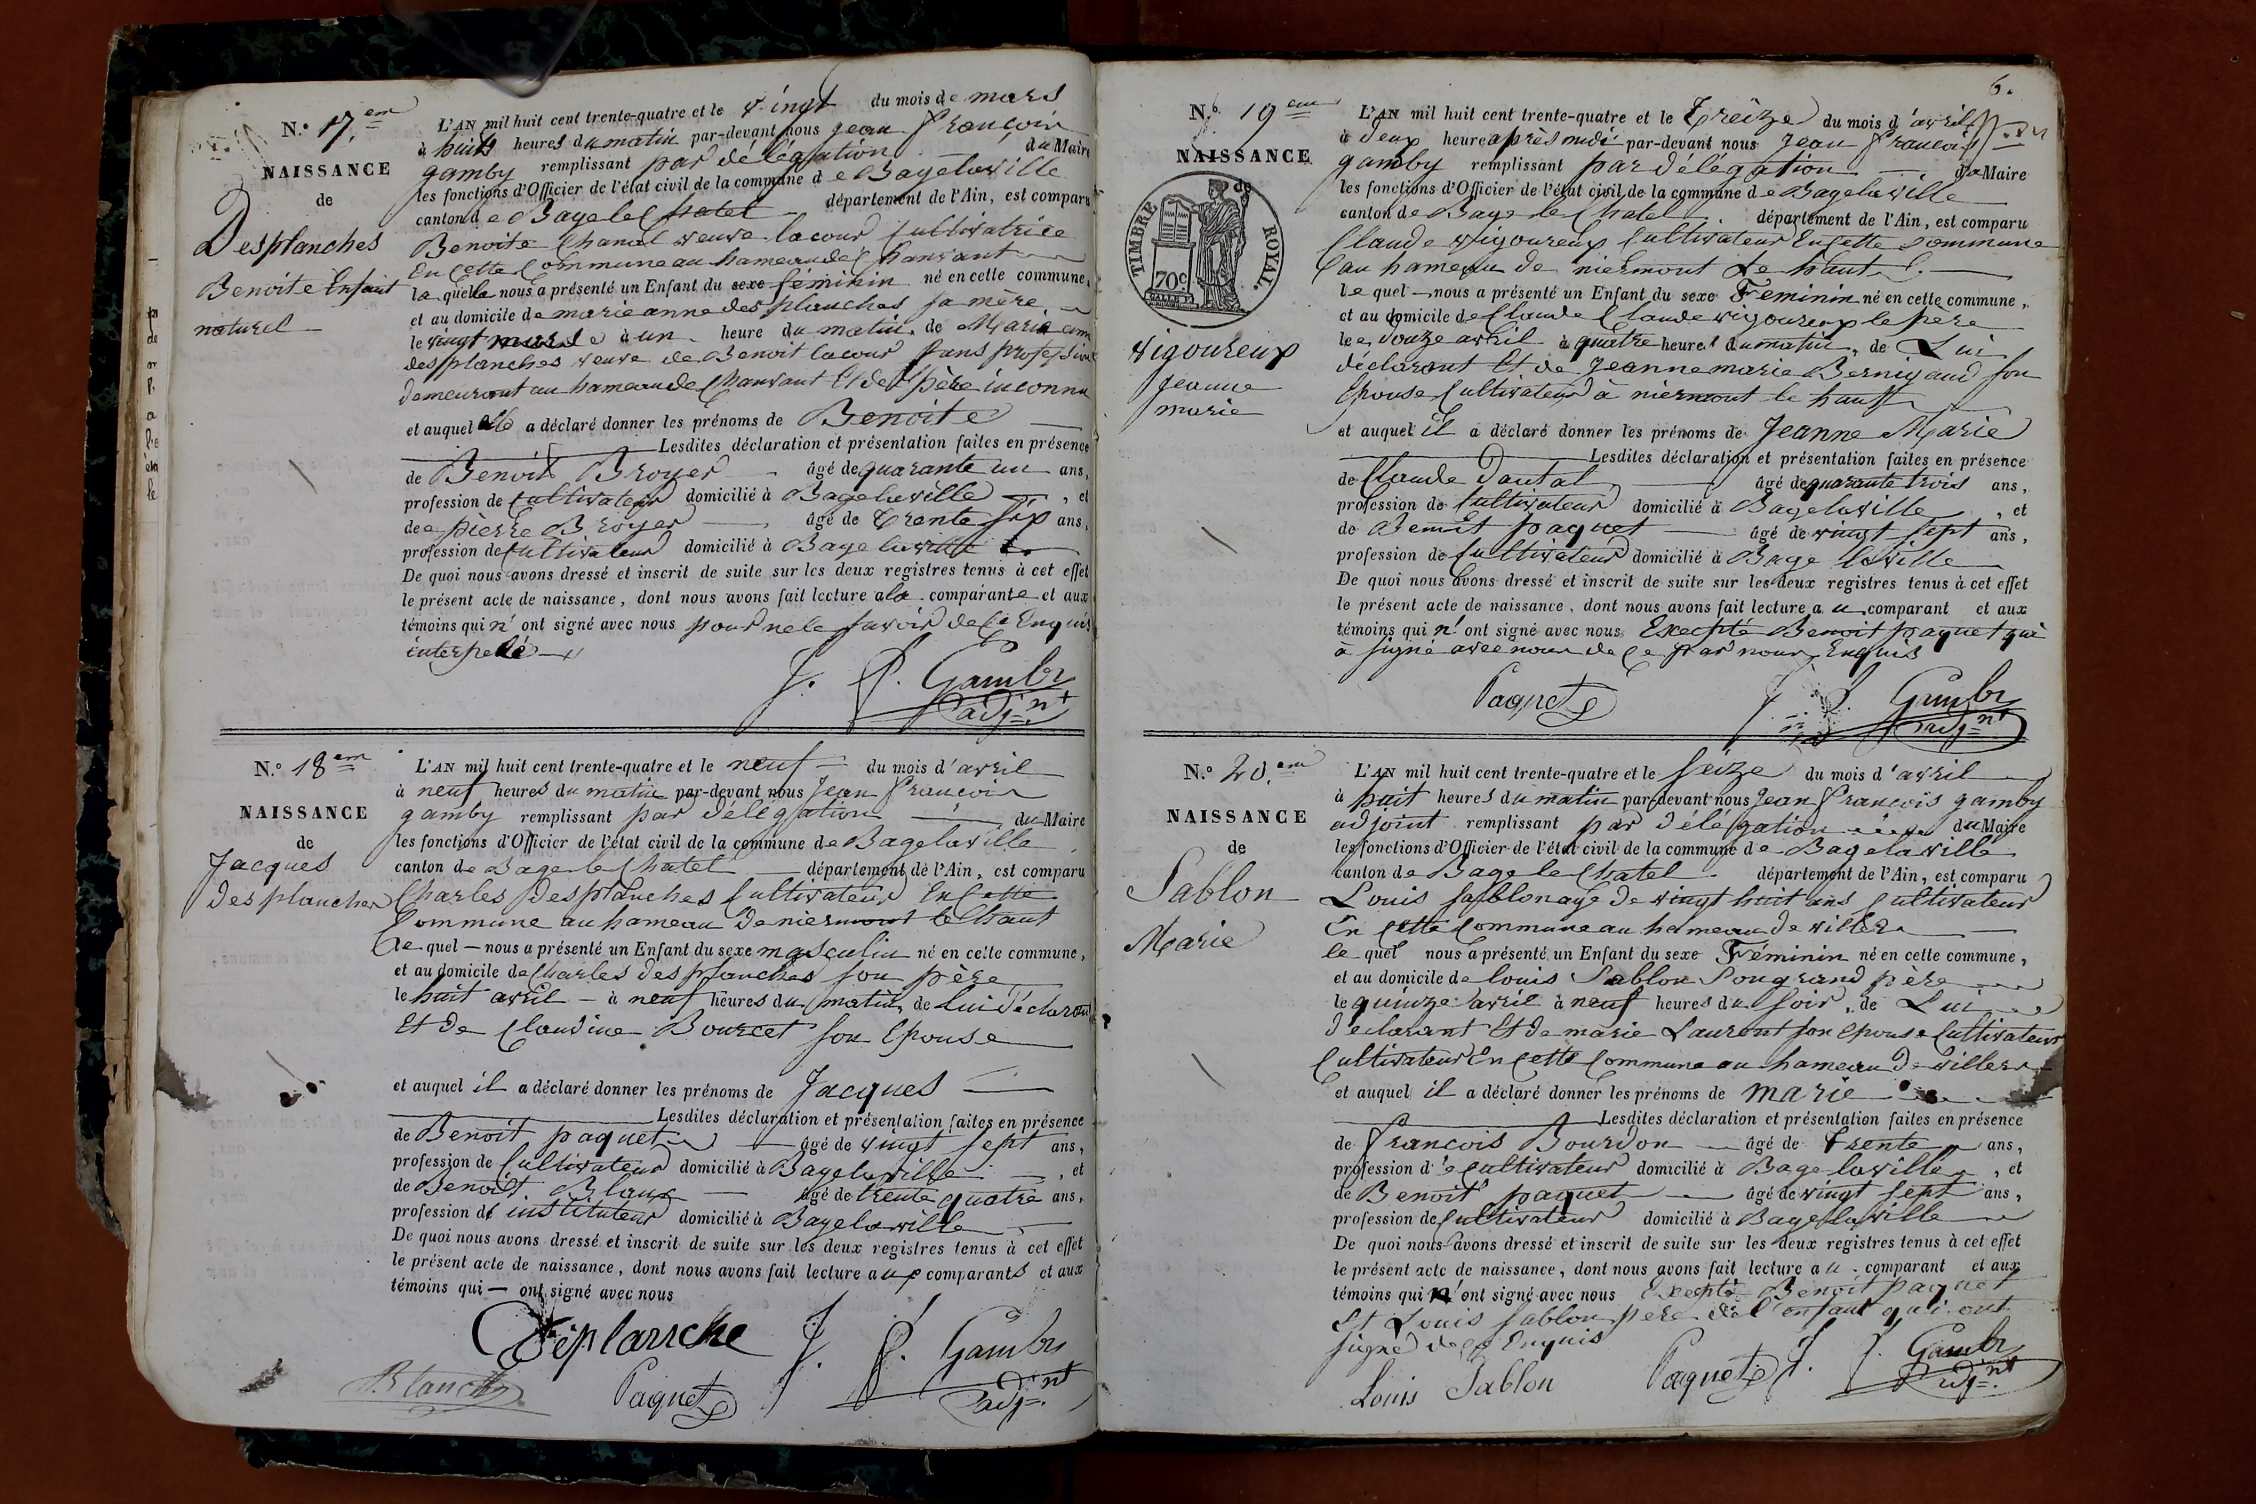 N.° 17.em
NAISSANCE
de
Desplanches
Benoite Enfant
naturel
L'AN mil huit cent trente-quatre et le vingt du mois de mars
à huit heures du matin par-devant nous Jean François
gamby remplissant par délégation du Maire
les fonctions d'Officier de l'état civil de la commune de Bagelaville
canton de Bage le Chatel département de l'Ain, est comparu
Benoite Chanel veuve lacour Cultivatrice
En Cette Commune au hameau de Chanvant
la quelle nous a présenté un Enfant du sexe féminin né en cette commune,
et au domicile de marie anne desplanches sa mère
le vingt mars à un heure du matin, de Marie anne
desplanches veuve de Benoit lacour sans profession
demeurant au hameau de Chanvant Et de père inconnu
et auquel elle a déclaré donner les prénoms de Benoite
Lesdites déclaration et présentation faites en présence
de Benoit Broyer âgé de quarante un ans,
profession de Cultivateur domicilié à Bagelaville , et
de pierre Broyer âgé de trente six ans,
profession de Cultivateur domicilié à Bagelaville
De quoi nous avons dressé et inscrit de suite sur les deux registres tenus à cet effet
le présent acte de naissance, dont nous avons fait lecture a la comparante et aux
témoins qui n' ont signé avec nous pour ne le savoir de ce Enquis
interpellé
J. F. Gamby
adj.nt
N.° 18em
NAISSANCE
de
Jacques
desplanches
L'AN mil huit cent trente-quatre et le neuf du mois d'avril
à neuf heures du matin par-devant nous Jean François
gamby remplissant par délégation du Maire
les fonctions d'Officier de l'état civil de la commune de Bagelaville
canton de Bage le Chatel département de l'Ain, est comparu
Charles desplanches Cultivateur En Cette
Commune au hameau de niermont le haut
le quel — nous a présenté un Enfant du sexe masculin né en cette commune,
et au domicile de Charles desplanches son père
le huit avril — à neuf heures du matin, de Lui déclarant
Et de Claudine Bourcet son Epouse
et auquel il a déclaré donner les prénoms de Jacques
Lesdites déclaration et présentation faites en présence
de Benoit paquet âgé de vingt sept ans,
profession de Cultivateur domicilié à Bagelaville , et
de Benoit Blanc âgé de trente quatre ans,
profession de instituteur domicilié à Bagelaville
De quoi nous avons dressé et inscrit de suite sur les deux registres tenus à cet effet
le présent acte de naissance, dont nous avons fait lecture aux comparants et aux
témoins qui — ont signé avec nous
Deplanche J. F. Gamby
Paquet adj.nt
6.
N.° 19em
NAISSANCE
de
TIMBRE ROYAL.
70c
vigoureux
jeanne
marie
L'AN mil huit cent trente-quatre et le treize du mois d'avril
à deux heure après midi par-devant nous Jean François
gamby remplissant par délégation du Maire
les fonctions d'Officier de l'état civil de la commune de Bagelaville
canton de Bage le Chatel département de l'Ain, est comparu
Claude vigoureux Cultivateur En Cette Commune
au hameau de niermont Le haut
le quel — nous a présenté un Enfant du sexe Feminin né en cette commune,
et au domicile de Claude Claude vigoureux le père
le douze avril à quatre heures du matin, de Lui
déclarant Et de Jeanne marie Bernigaud son
Epouse Cultivateur à niermont le haut
et auquel il a déclaré donner les prénoms de Jeanne Marie
Lesdites déclaration et présentation faites en présence
de Claude Dautal âgé de quarante trois ans,
profession de Cultivateur domicilié à Bagelaville , et
de Benoit paquet âgé de vingt sept ans,
profession de Cultivateur domicilié à Bage laville
De quoi nous avons dressé et inscrit de suite sur les deux registres tenus à cet effet
le présent acte de naissance, dont nous avons fait lecture au comparant et aux
témoins qui n' ont signé avec nous Excepté Benoit paquet qui
à signé avec nous de Ce par nous Enquis
Paquet J. F. Gamby
adj.nt
N.° 20.em
NAISSANCE
de
Sablon
Marie
L'AN mil huit cent trente-quatre et le seize du mois d'avril
à huit heures du matin par-devant nous Jean François gamby
adjoint remplissant par délégation du Maire
les fonctions d'Officier de l'état civil de la commune de Bagelaville
canton de Bage le Chatel département de l'Ain, est comparu
Louis Sablon agé de vingt huit ans Cultivateur
En Cette Commune au hameau de villers
le quel nous a présenté un Enfant du sexe Féminin né en cette commune,
et au domicile de louis Sablon Son grand père
le quinze avril à neuf heures du soir, de Lui
declarant Et de marie Laurent son epouse Cultivateurs
Cultivateurs En Cette Commune au hameau De villers
et auquel il a déclaré donner les prénoms de marie
Lesdites déclaration et présentation faites en présence
de François Bourdon âgé de trente ans,
profession de cultivateur domicilié à Bage laville , et
de Benoit paquet âgé de vingt sept ans,
profession de Cultivateur domicilié à Bagelaville
De quoi nous avons dressé et inscrit de suite sur les deux registres tenus à cet effet
le présent acte de naissance, dont nous avons fait lecture au comparant et aux
témoins qui n' ont signé avec nous Excepté Benoit paquet
Et Louis Sablon père de l'enfant qui ont
signé de Ce Enquis
Louis Sablon Paquet J. F. Gamby
adj.nt